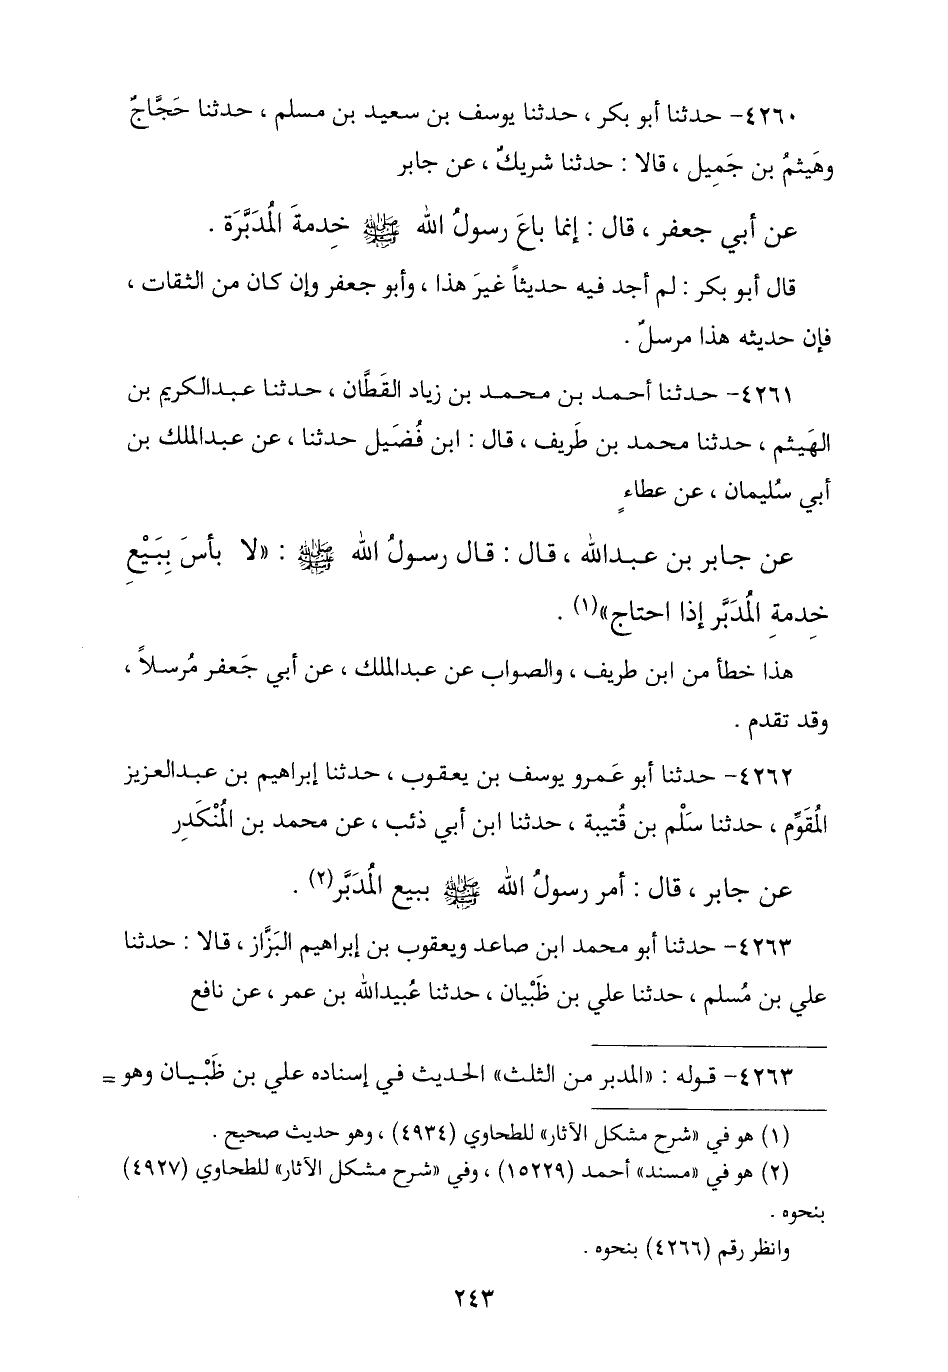 ٤٢٦٠- حدثنا أبو بكر ، حدثنا يوسف بن سعيد بن مسلم ، حدثنا حَجَّاجٌ
وهَيثمُ بن جَمِيل ، قالا : حدثنا شريكٌ ، عن جابر
عن أبي جعفر ، قال : إنما باعَ رسولُ الله ﷺ خِدمةَ المُدَبَّرَة .
قال أبو بكر : لم أجد فيه حديثاً غيرَ هذا ، وأبو جعفر وإن كان من الثقات ،
فإن حديثه هذا مرسلٌ .
٤٢٦١- حدثنا أحمد بن محمد بن زياد القَطَّان ، حدثنا عبدالكريم بن
الهَيثم ، حدثنا محمد بن طَريف ، قال : ابن فُضَيل حدثنا ، عن عبدالملك بن
أبي سُليمان ، عن عطاءٍ
عن جابر بن عبدالله ، قال : قال رسولُ الله ﷺ : «لا بأسَ بِبَيْعِ
خِدمةِ المُدَبَّرِ إذا احتاج»(١) .
هذا خطأ من ابن طريف ، والصواب عن عبدالملك ، عن أبي جَعفر مُرسلاً ،
وقد تقدم .
٤٢٦٢- حدثنا أبو عَمرو يوسف بن يعقوب ، حدثنا إبراهيم بن عبدالعزيز
المُقَوِّم ، حدثنا سَلْم بن قُتيبة ، حدثنا ابن أبي ذئب ، عن محمد بن المُنْكَدِر
عن جابر ، قال : أمر رسولُ الله ﷺ ببيع المُدَبَّر(٢) .
٤٢٦٣- حدثنا أبو محمد ابن صاعد ويعقوب بن إبراهيم البَزَّاز ، قالا : حدثنا
علي بن مُسلم ، حدثنا علي بن ظَبْيان ، حدثنا عُبيدالله بن عمر ، عن نافع
٤٢٦٣- قوله : «المدبر من الثلث» الحديث في إسناده علي بن ظَبْيان وهو =
(١) هو في «شرح مشكل الآثار» للطحاوي (٤٩٣٤) ، وهو حديث صحيح .
(٢) هو في «مسند» أحمد (١٥٢٢٩) ، وفي «شرح مشكل الآثار» للطحاوي (٤٩٢٧)
بنحوه .
وانظر رقم (٤٢٦٦) بنحوه .
٢٤٣